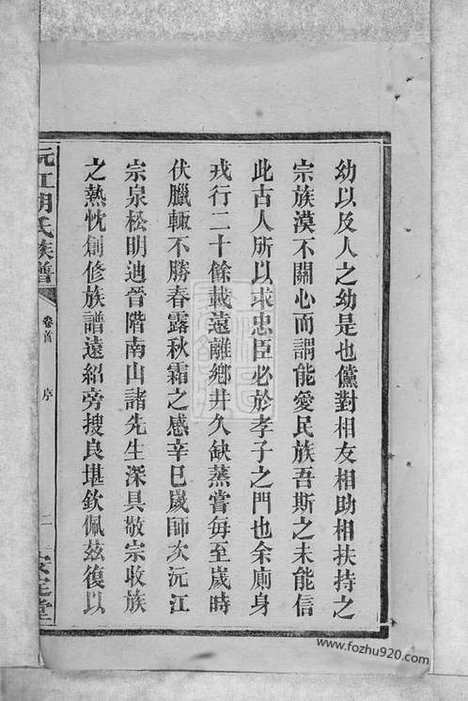 幼以及人之幼是也儻對相友相助相扶持之
宗族漠不關心而謂能愛民族吾斯之未能信
此古人所以求忠臣必於孝子之門也余廁身
戎行二十餘載遠離鄉井久缺蒸嘗每至歲時
伏臘輒不勝春露秋霜之感辛巳歲師次沅江
宗泉松明迪晉階南山諸先生深具敬宗收族
之熱忱創修族譜遠紹旁搜良堪欽佩茲復以
沅江胡氏族譜
卷首
序
二
安定堂
www.fozhu920.com